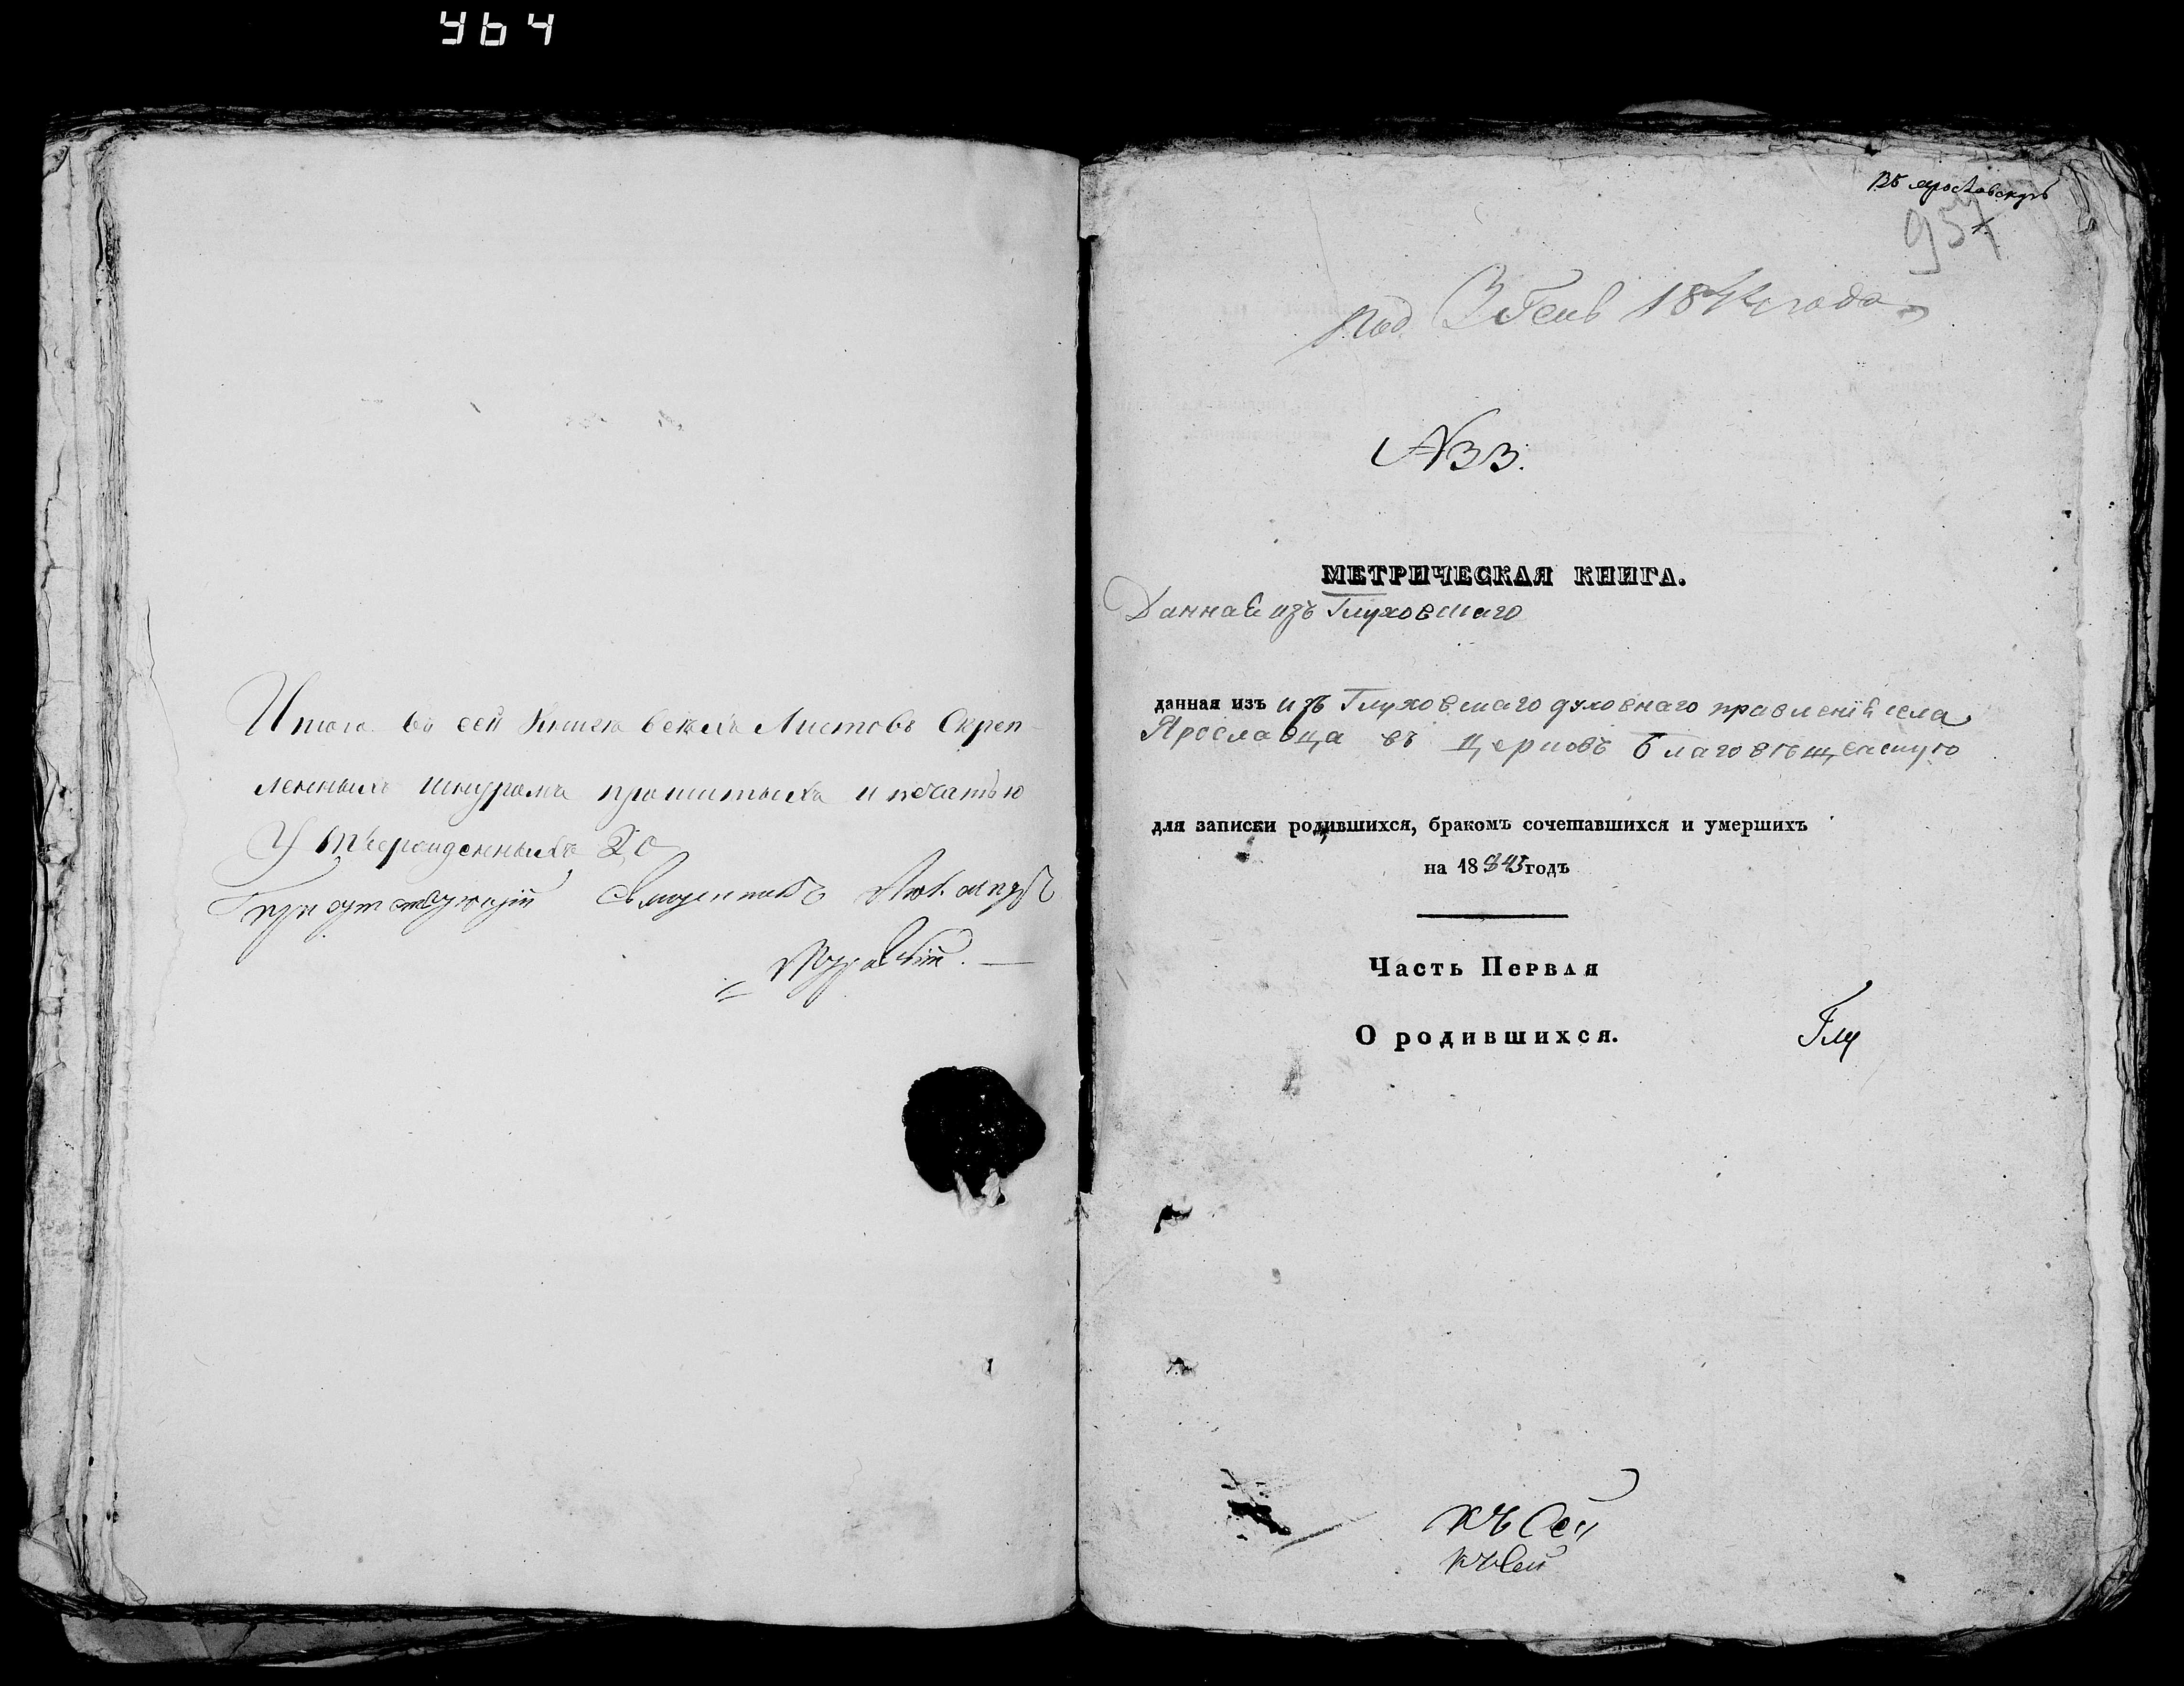 464
Итого въ сей Книгѣ всехъ Листовъ Скреп
ленныхъ шнуромъ прошитыхъ и печатью
Утвержденныхъ 20
присутствующій Священникъ
Въ
95
Под 184 года
№33.
МЕТРИЧЕСКАЯ КНИГА.
Данная изъ Глуховскаго
данная изъ изъ Глуховскаго духовнаго правленія села
Ярославца въ Церковь Благовѣщенскую
для записки родившихся, бракомъ сочетавшихся и умершихъ
на 1843 годъ
Часть Первая
О родившихся.
Глу
Къ Сей
Къ Сей